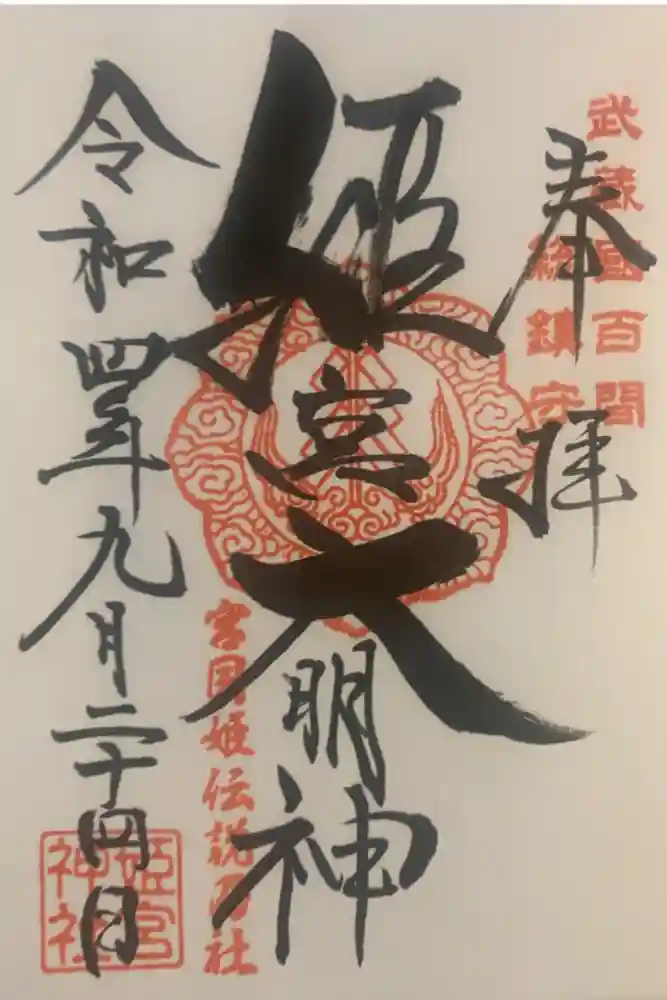 武蔵國百間
総鎮守
奉拝
姫宮大明神
宮国姫伝説の社
令和四年九月二十四日
姫宮
神社